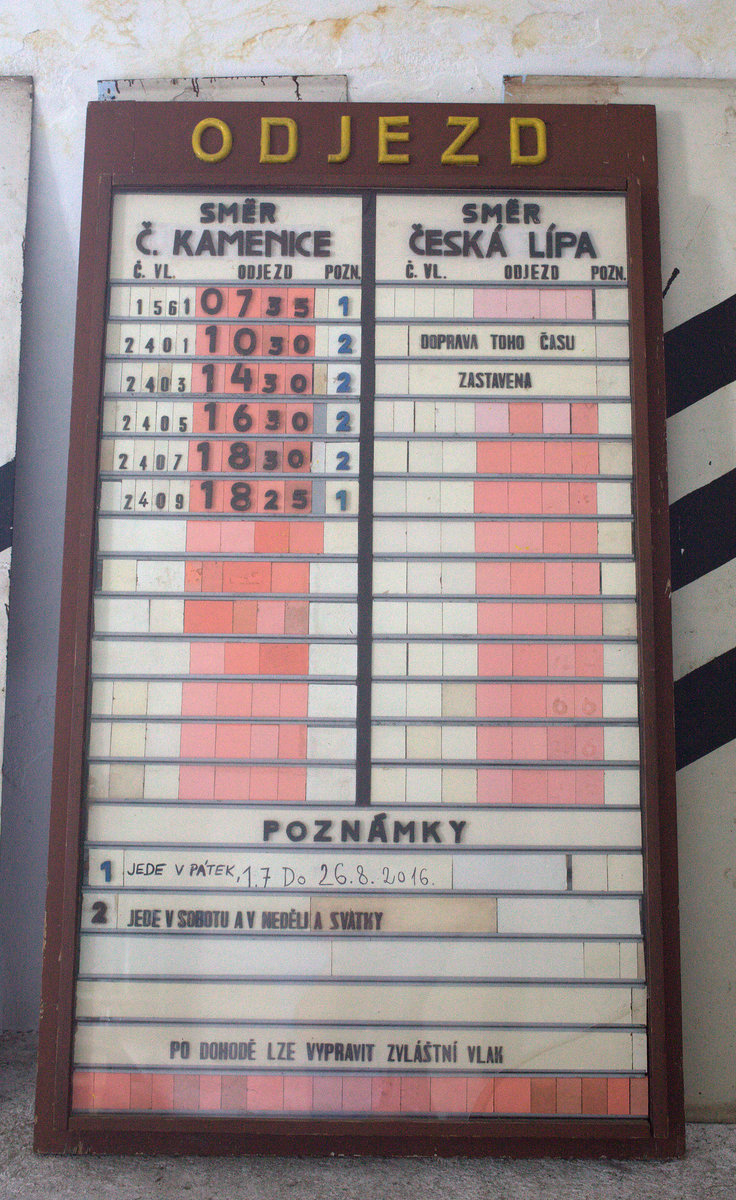 ODJEZD
SMĚR
Č. KAMENICE
Č. VL. ODJEZD POZN.
1561 0735 1
2401 1030 2
2403 1430 2
2405 1630 2
2407 1830 2
2409 1825 1
SMĚR
ČESKÁ LÍPA
Č. VL. ODJEZD POZN.
DOPRAVA TOHO ČASU
ZASTAVENA
POZNÁMKY
1 JEDE V PÁTEK, 1.7 Do 26.8.2016.
2 JEDE V SOBOTU A V NEDĚLI A SVÁTKY
PO DOHODĚ LZE VYPRAVIT ZVLÁŠTNÍ VLAK